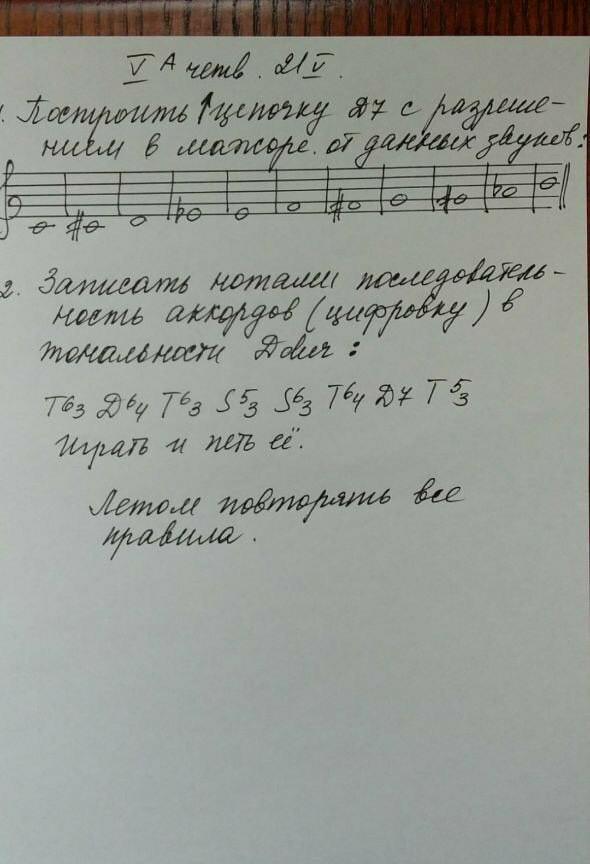 V А четв. 21 V.
1. Построить ↑ цепочку Д7 с разреше-
нием в мажоре. от данных звуков:
2. Записать нотами последователь-
ность аккордов (цифровку) в
тональности Дмич:
Т63 Д64 Т63 S53 S63 Т64 Д7 Т53
Играть и петь её.
Летом повторять все
правила.